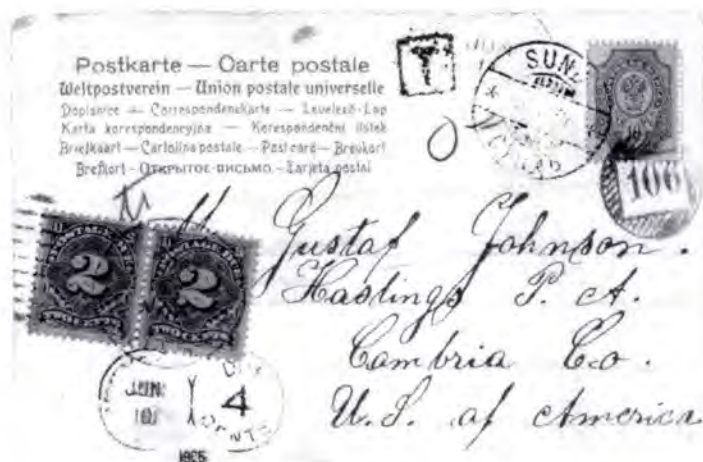 Postkarte — Carte postale
Weltpostverein — Union postale universelle
Dopisnice — Correspondenzkarte — Levelező-Lap
Karta korespondencyjna — Korespondenční lístek
Briefkaart — Cartolina postale — Post card — Brevkort
Brefkort — Открытое письмо — Tarjeta postal
T
SUND
10
106
Gustaf Johnson.
Hastings P. A.
Cambria Co.
U.S. of America
2
TWO CENTS
2
TWO CENTS
JUN
10
4
CENTS